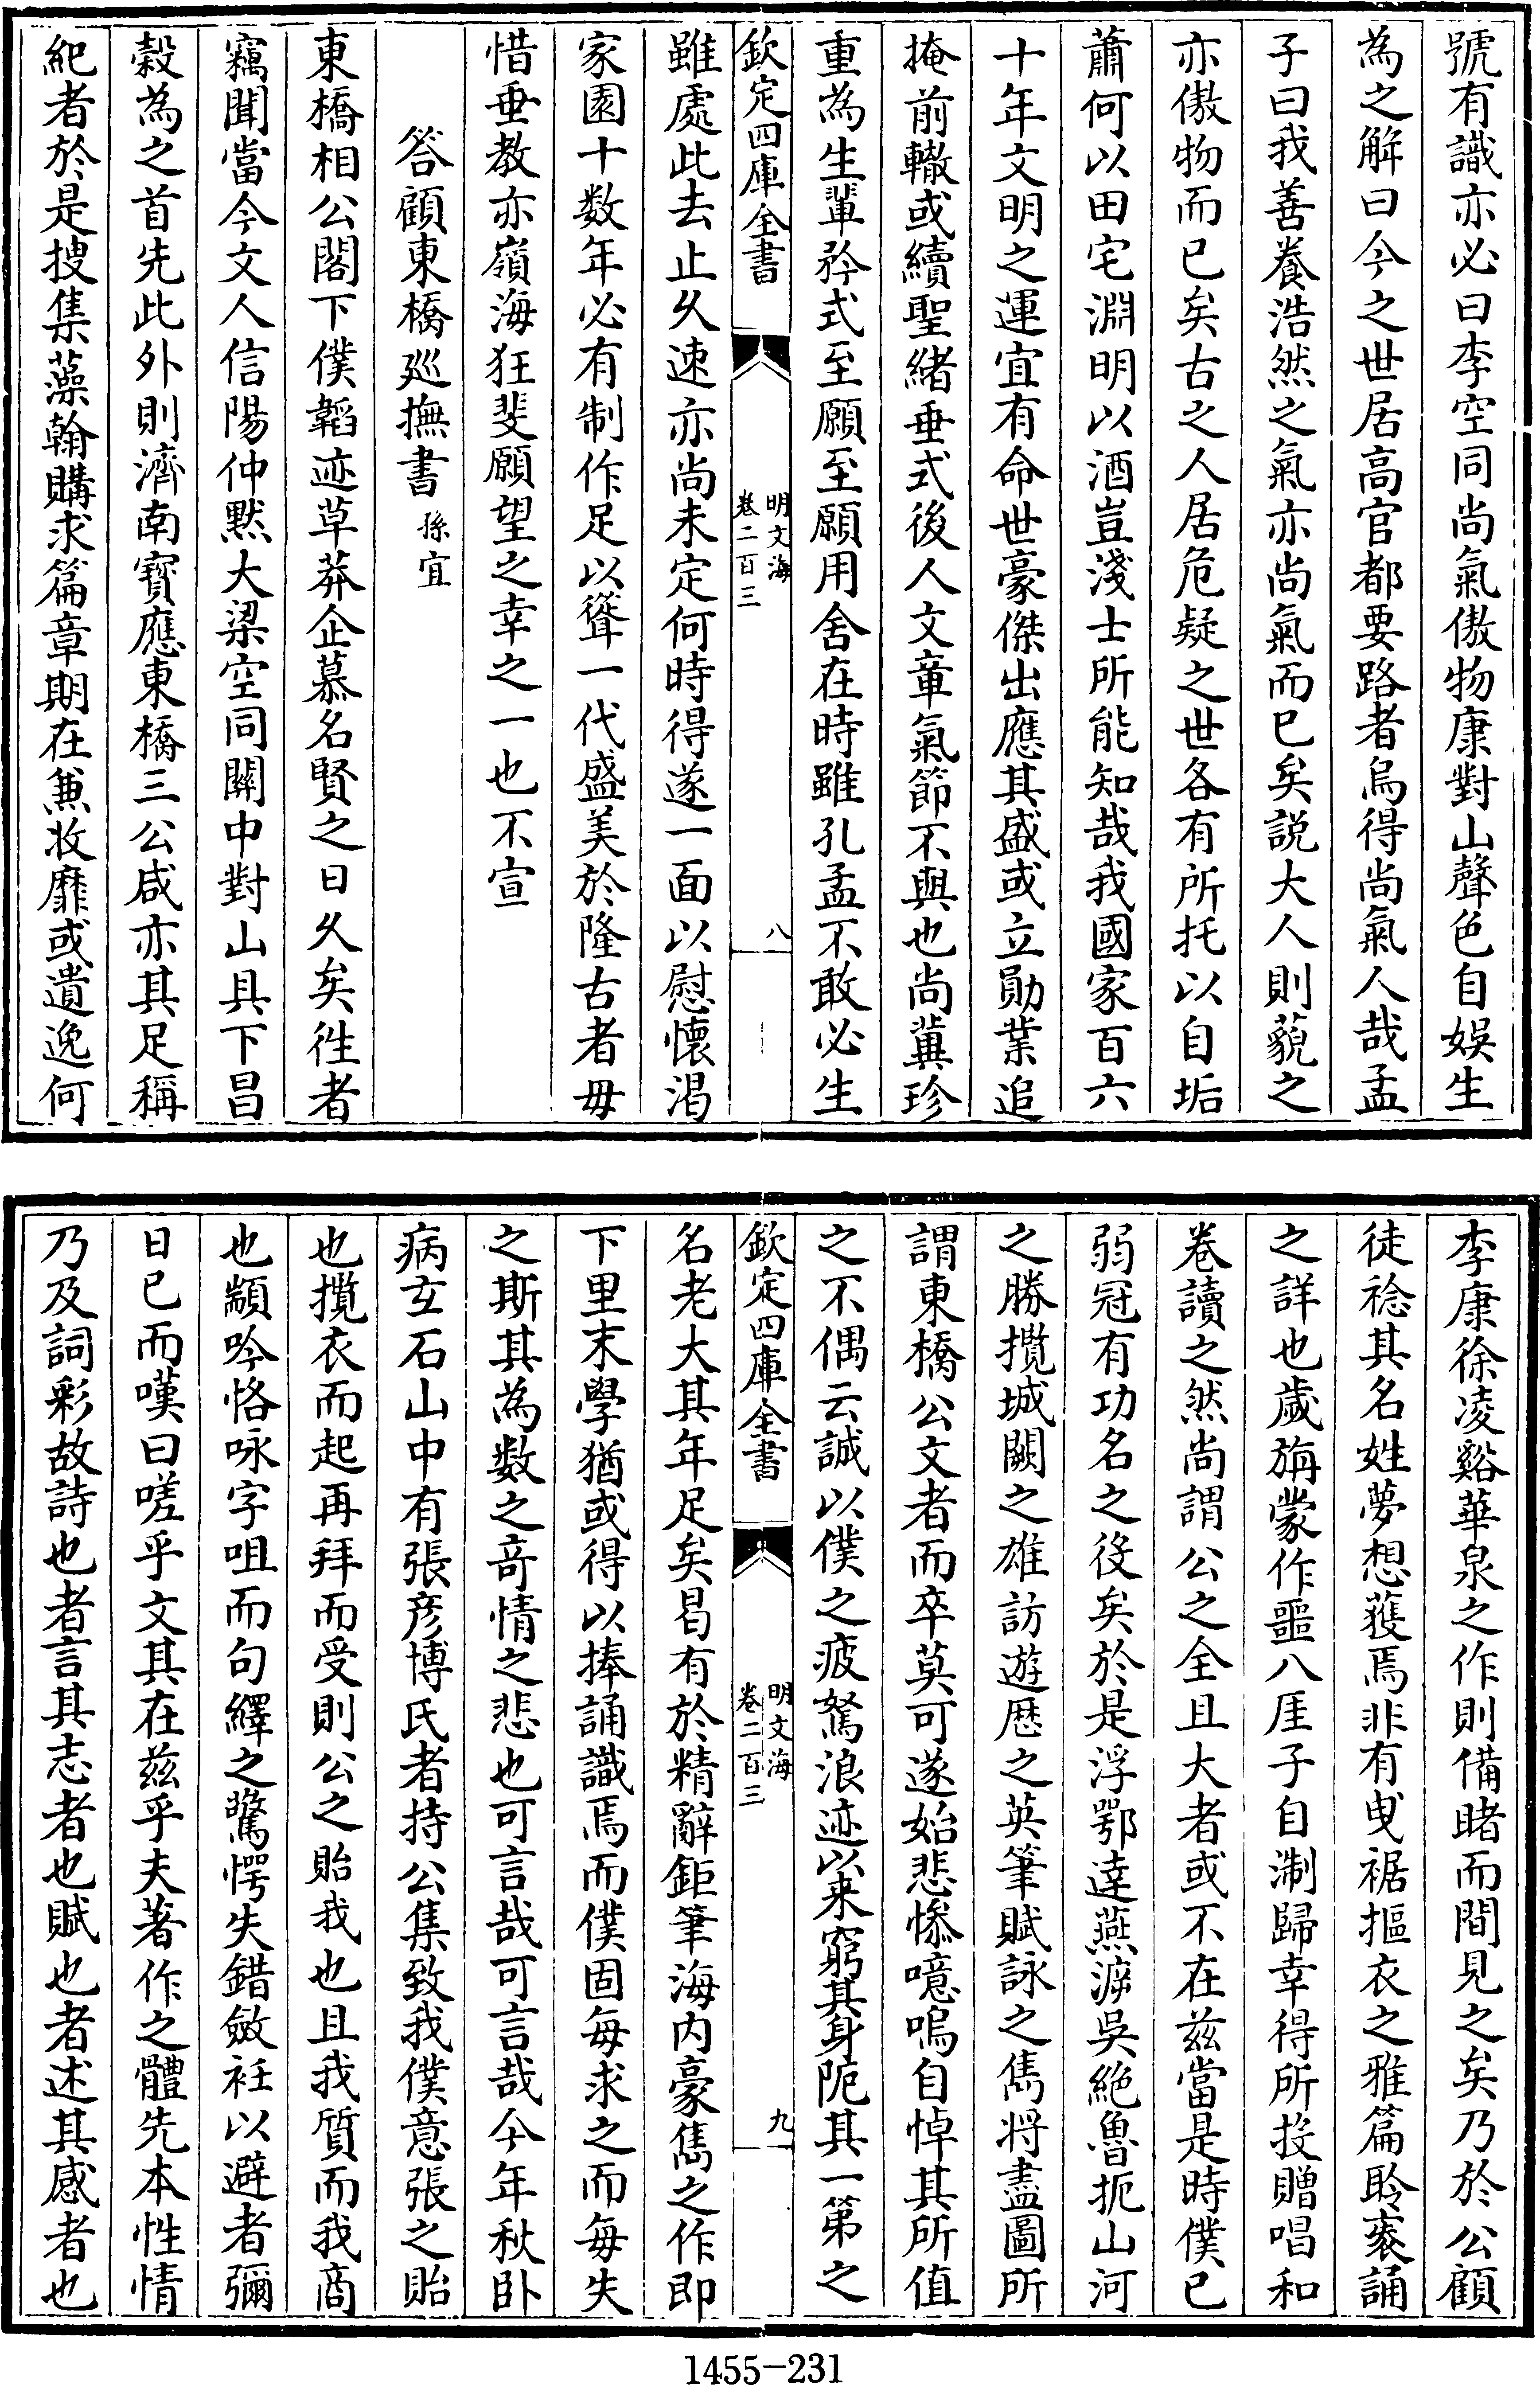 號有識亦必曰李空同尚氣傲物康對山聲色自娛生
為之解曰今之世居高官都要路者烏得尚氣人哉孟
子曰我善養浩然之氣亦尚氣而已矣説大人則藐之
亦傲物而已矣古之人居危疑之世各有所托以自垢
蕭何以田宅淵明以酒豈淺士所能知哉我國家百六
十年文明之運宜有命世豪傑出應其盛或立勛業追
掩前轍或續聖緒垂式後人文章氣節不與也尚冀珍
重為生輩矜式至願至願用舍在時雖孔孟不敢必生
欽定四庫全書
明文海
卷二百三
八
雖處此去止久速亦尚未定何時得遂一面以慰懷渴
家園十数年必有制作足以聳一代盛美於隆古者毋
惜垂教亦嶺海狂斐願望之幸之一也不宣
答顧東橋廵撫書 孫宜
東橋相公閣下僕韜迹草莽企慕名賢之日久矣徃者
竊聞當今文人信陽仲黙大梁空同關中對山具下昌
穀為之首先此外則濟南寳應東橋三公咸亦其足稱
紀者於是搜集藻翰購求篇章期在兼收靡或遺逸何
李康徐凌谿華泉之作則備睹而間見之矣乃於公顧
徒稔其名姓夢想獲焉非有曳裾摳衣之雅篇聆袠誦
之詳也歲旃蒙作噩八厓子自淛歸幸得所投贈唱和
卷讀之然尚謂公之全且大者或不在兹當是時僕已
弱冠有功名之役矣於是浮鄂達燕游吳絶魯扼山河
之勝攬城闕之雄訪遊歴之英筆賦詠之雋將盡圖所
謂東橋公文者而卒莫可遂始悲慘噫嗚自悼其所值
之不偶云誠以僕之疲駑浪迹以来窮其身阨其一第之
欽定四庫全書
明文海
卷二百三
九
名老大其年足矣曷有於精辭鉅筆海内豪雋之作即
下里末學猶或得以捧誦識焉而僕固每求之而每失
之斯其為数之竒情之悲也可言哉可言哉今年秋卧
病玄石山中有張彦博氏者持公集致我僕意張之貽
也攬衣而起再拜而受則公之貽我也且我質而我商
也顓吟恪咏字咀而句繹之驚愕失錯斂衽以避者彌
日已而嘆曰嗟乎文其在兹乎夫著作之體先本性情
乃及詞彩故詩也者言其志者也賦也者述其感者也
1455-231